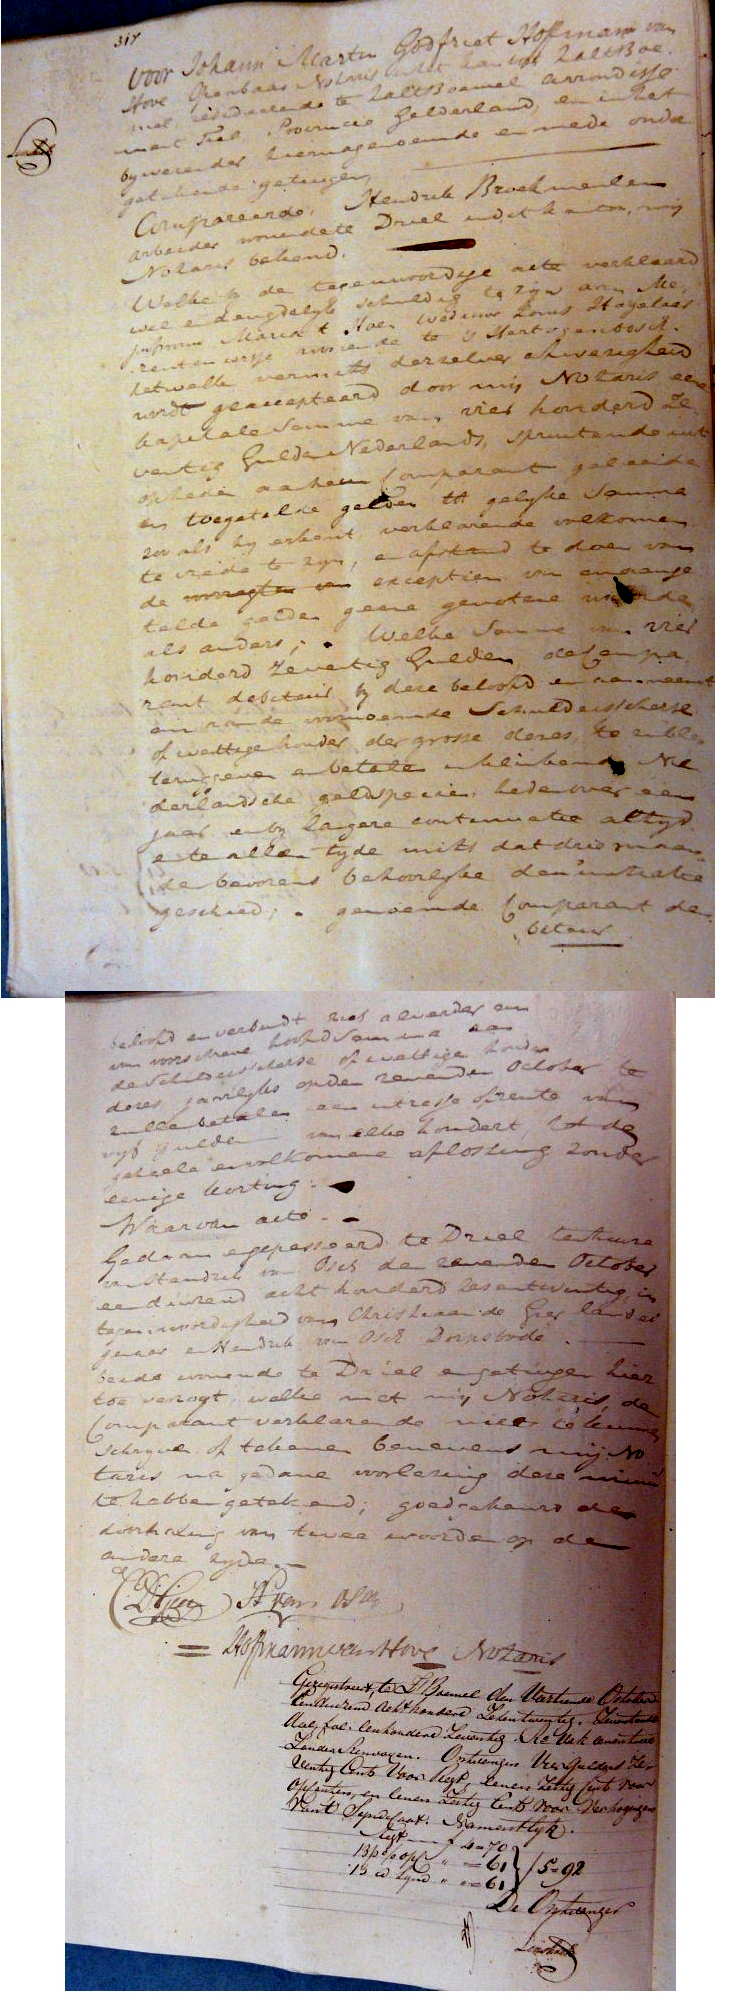 317
Voor Johann Martin Godfriet Hoffmann van
Hove Openbaar Notaris in het kanton ZaltBoe
mel resideerende te ZaltBoemel arrondisse
ment Tiel Provincie Gelderland, en in het
bywezen der hiernagenoemde en mede onder
getekende getuigen,
Compareerde, Hendrik Broekmeulen
arbeider wonende te Driel in dit kanton, mij
Notaris bekend.
Welke by de tegenwoordige acte verklaard
wel en deugdelyk schuldig te zijn aan Me
jufvrouw Maria t Hoen Weduwe Louis Hagelaas
rentenierse wonende te 's Hertogenbosch.
hetwelk vermits derzelver afwezigheid
wordt geaccepteerd door mij Notaris eene
kapitale somme van vier honderd ze
ventig Gulden Nederlands, spruitende uit
opheden aan hem Comparant geleende
en toegetelde gelden tot gelyke Somma
zoo als hy erkent, verklarende volkomen
te vrede te zyn, en afstand te doen van
de exceptien van onaange
telde gelden geene genotene waarde
als anders; Welke Somme van vier
honderd Zeventig Gulden, de Compa
rant debiteur by deze beloofd en aanneemt
aan de voornoemde Schuldeisscherse
of wettige houder der grosse dezes, te zullen
teruggeven en betalen in klinkende Ne
derlandsche geldspecien, heden over een
jaar en by langere continuatie altyd
en te allen tyde mits dat drie maan
de bevorens behoorlyke denuntiatie
geschied; genoemde Comparant de
biteur
beloofd en verbindt zich al verder om
van voorschreve hoofdsomma aan
de Schuldeisscherse of wettige houder
dezes jaarlyks op den zevenden October te
zullen betalen een intresse of rente van
vyf gulden van elke hondert, tot de
geheele en volkomene aflossing zonder
eenige korting.
Waarvan acte.
Gedaan en gepasseerd te Driel ten huize
van Hendrik van Osch den zevenden October
een duizend acht honderd zes en twintig, in
tegenwoordigheid van Christiaan de Gier land ei
genaar en Hendrik van Osch Dorpsbode
beide wonende te Driel en getuigen hier
toe verzogt, welke met mij Notaris, de
Comparant verklarende niet te kunnen
schryven of tekenen benevens mij No
taris na gedane voorlezing deze minut
te hebben getekend; goedgekeurd de
doorhaling van twee woorden op de
andere zyde
CD Gier H van Osch
Hoffmann van Hove Notaris
Geregistreerd te Z Bommel den Veertiende October
Eenduizend Acht honderd Zesentwintig.
Een honderd Zeventig
Zonder Renvoyen. Ontvangen Vier Guldens Ze
ventig Cents Voor Regt, Eenen Zestig Cents voor
opcenten, en Eenen Zestig Cents voor Verhooging
Syndicaat. Namentlyk.
Regt f 4=70
13 p opc " =61 } f 5=92
13 id Synd " =61
De Ontvanger